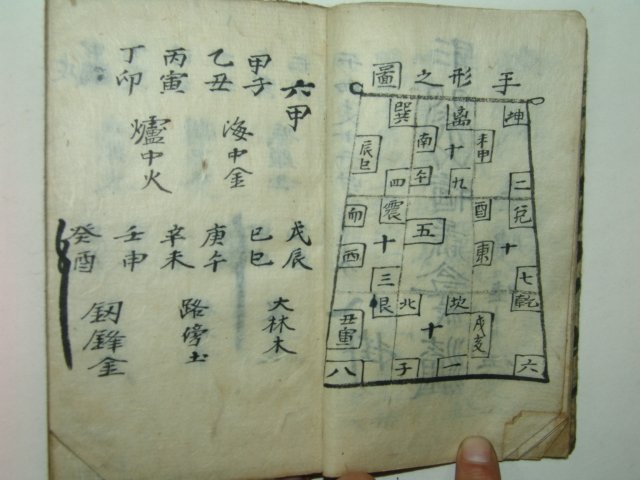 手形之圖
坤
離
巽
十
南
午
辰巳
二
九
四
兌
酉
震
東
十
五
十
七
三
乾
坎
北
艮
戌亥
十
丑寅
六
一
子
八
六甲
甲子
乙丑
海中金
丙寅
丁卯
爐中火
戊辰
己巳
大林木
庚午
辛未
路傍土
壬申
癸酉
釼鋒金